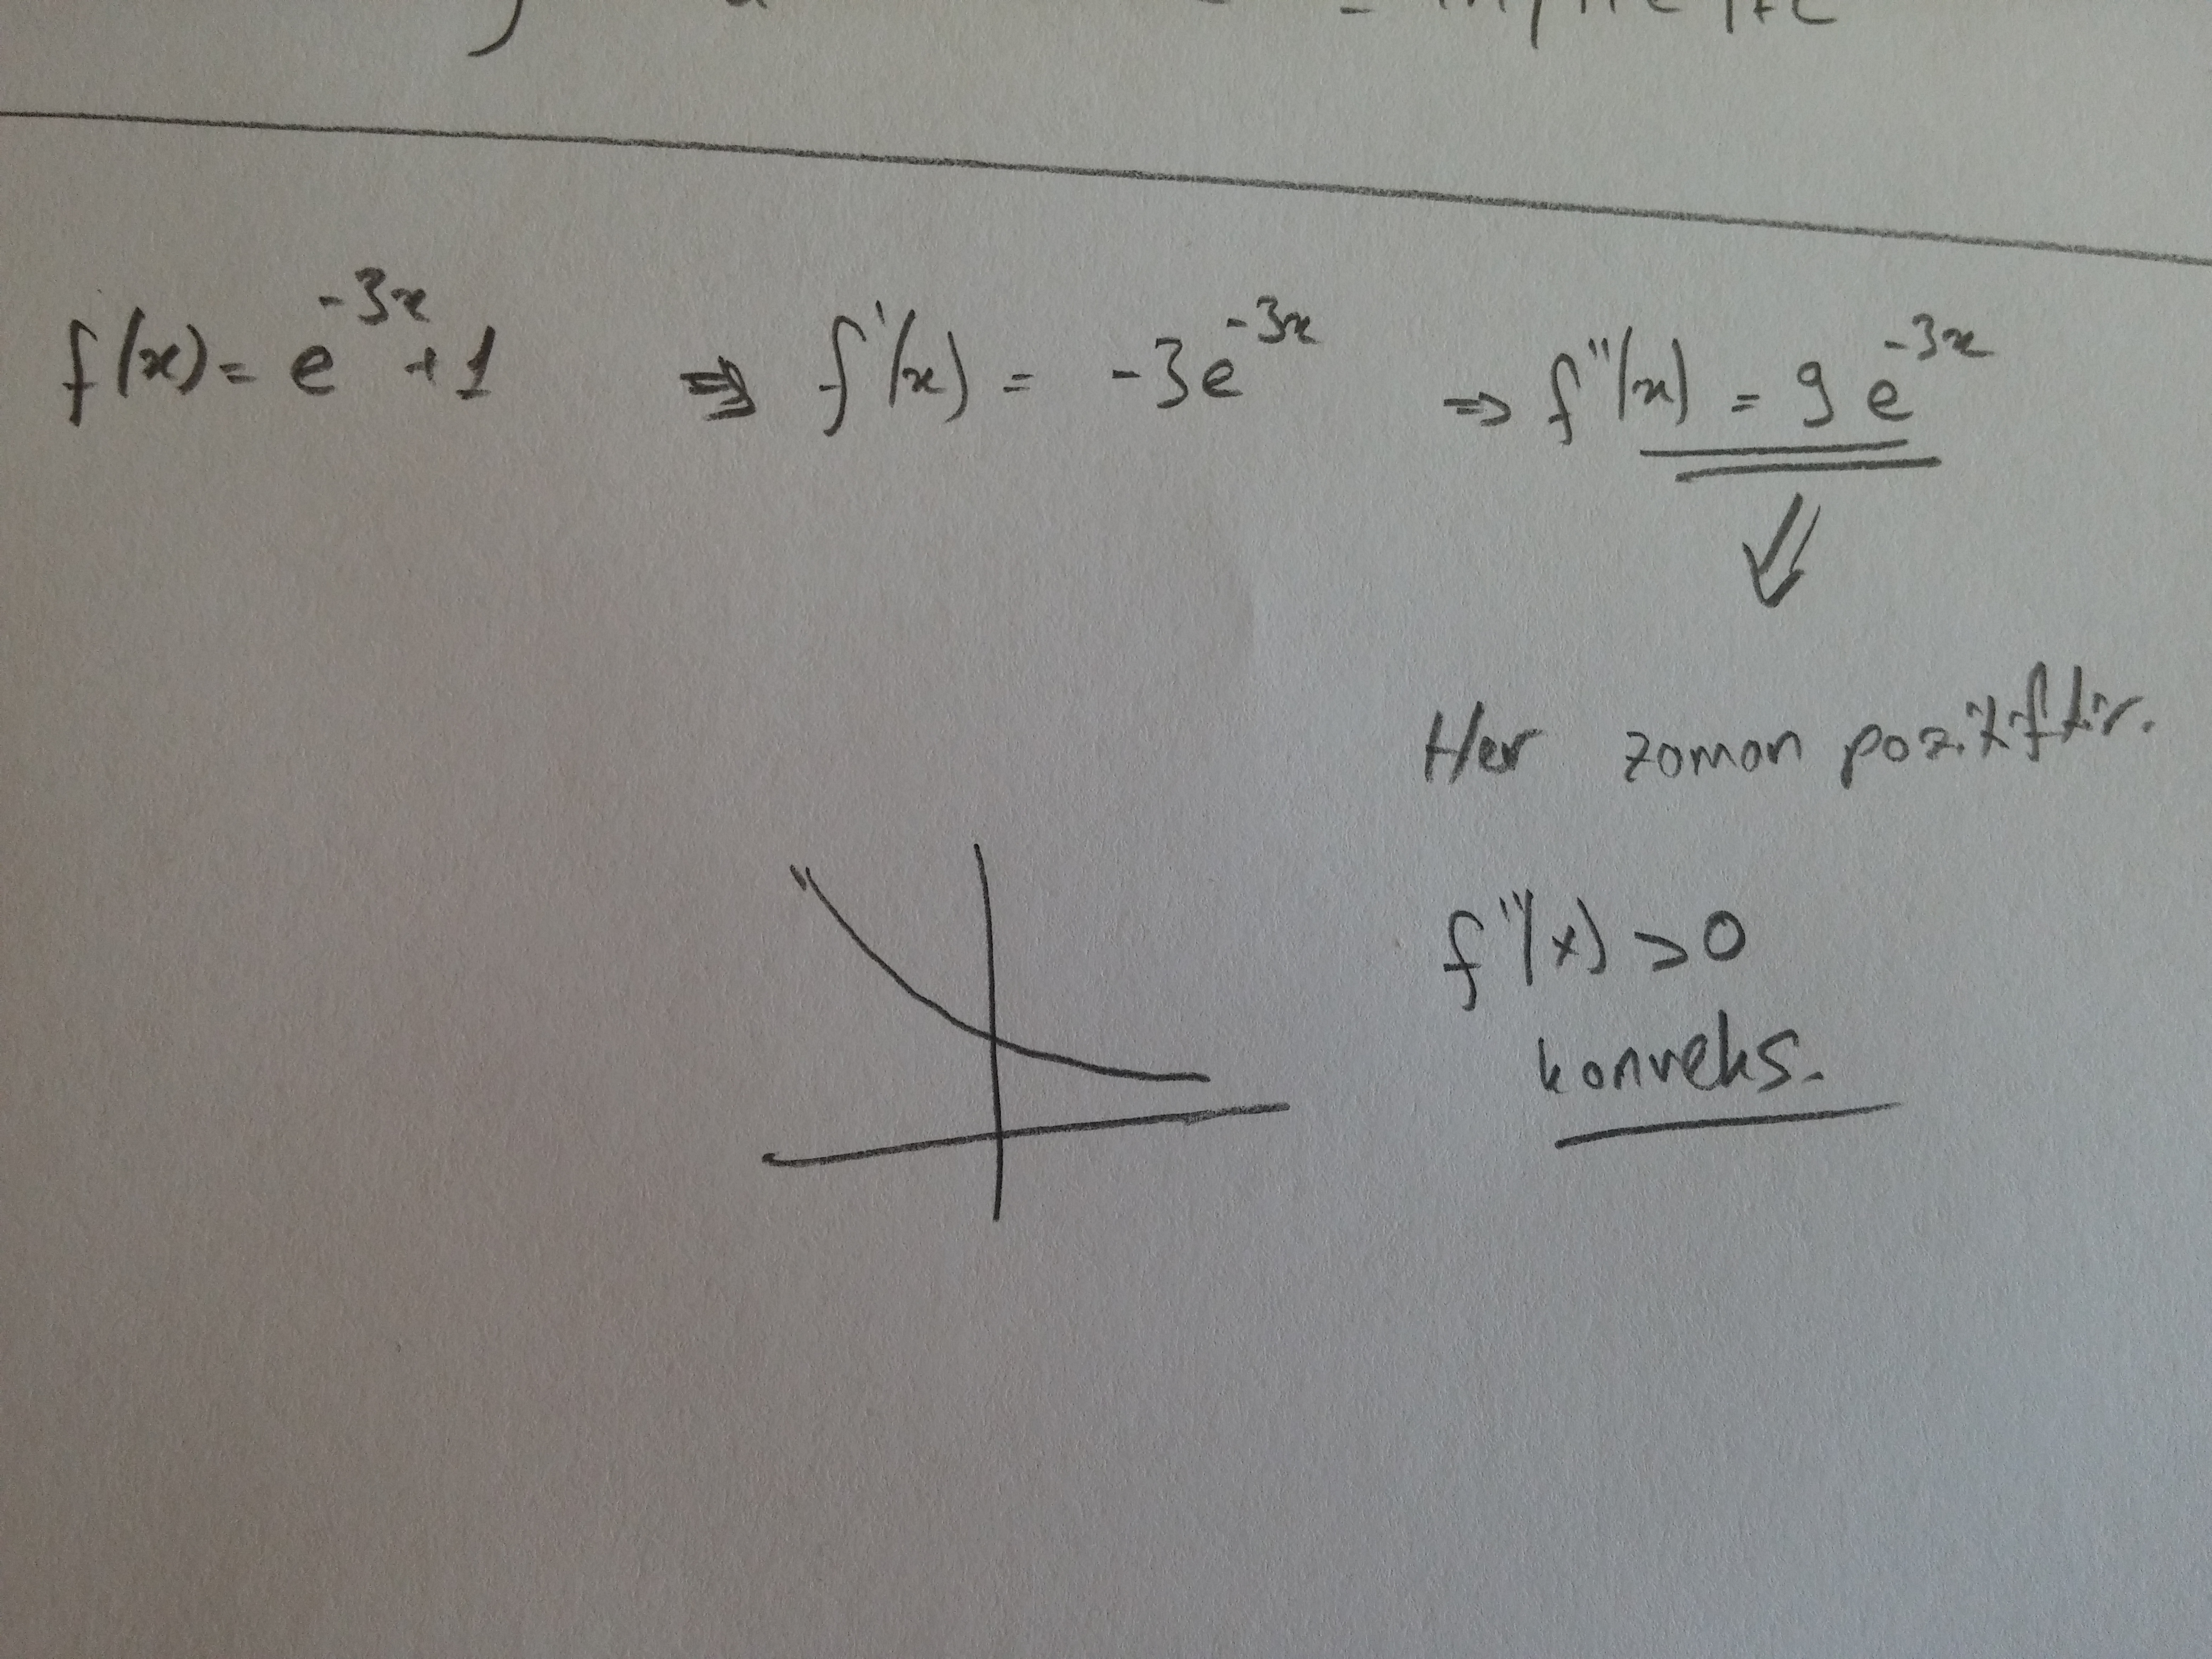 f(x) = e^{-3x} + 1 ⇒ f'(x) = -3e^{-3x} ⇒ f''(x) = 9e^{-3x}
Her zaman pozitiftir.
f''(x) > 0
konveks.